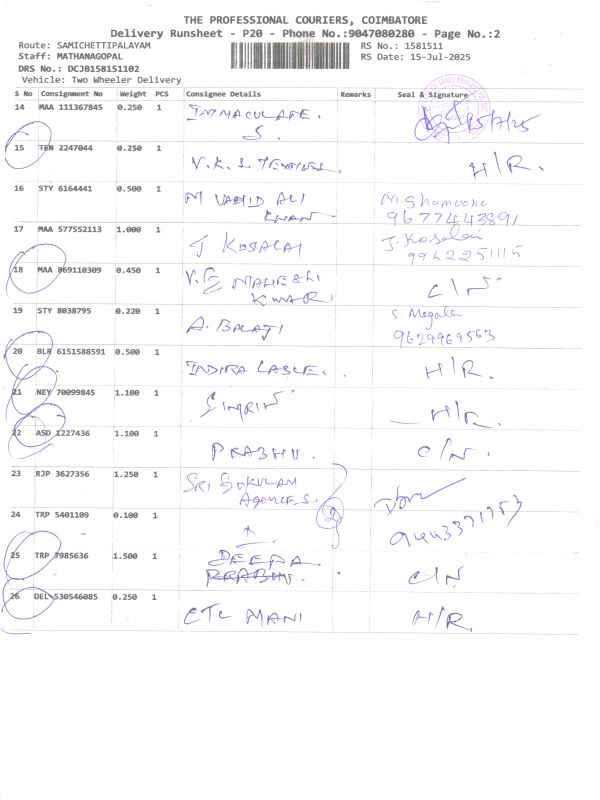 THE PROFESSIONAL COURIERS, COIMBATORE
Delivery Runsheet - P20 - Phone No.:9047080280 - Page No.:2
Route: SAMICHETTIPALAYAM RS No.: 1581511
Staff: MATHANAGOPAL RS Date: 15-Jul-2025
DRS No.: DCJB158151102
Vehicle: Two Wheeler Delivery
S No Consignment No Weight PCS Consignee Details Remarks Seal & Signature
14 MAA 111367845 0.250 1 IMMACULATE.
S. 15/7/25
15 TEN 2247044 0.250 1
V.K.S H/R.
16 STY 6164441 0.500 1 M VAHID ALI
KHAN
9677443891
17 MAA 577552113 1.000 1 J KOSALAI J. Kosalai
9962251115
18 MAA 869110309 0.450 1 V. MAHESH
KUMAR C/N
19 STY 8038795 0.220 1 A. BALAJI S. Megala
9629969563
20 BLR 6151588591 0.500 1 INDIRA CABLE. H/R.
21 NEY 70099845 1.100 1 H/R.
22 ASD 1227436 1.100 1 PRABHU. C/N.
23 RJP 3627356 1.250 1 SRI GOKULAM
AGENCIES.
2
24 TRP 5401109 0.100 1
25 TRP 7985636 1.500 1 DEEPA
PRABHU. C/N
26 DEL 530546085 0.250 1 CTC MANI H/R.